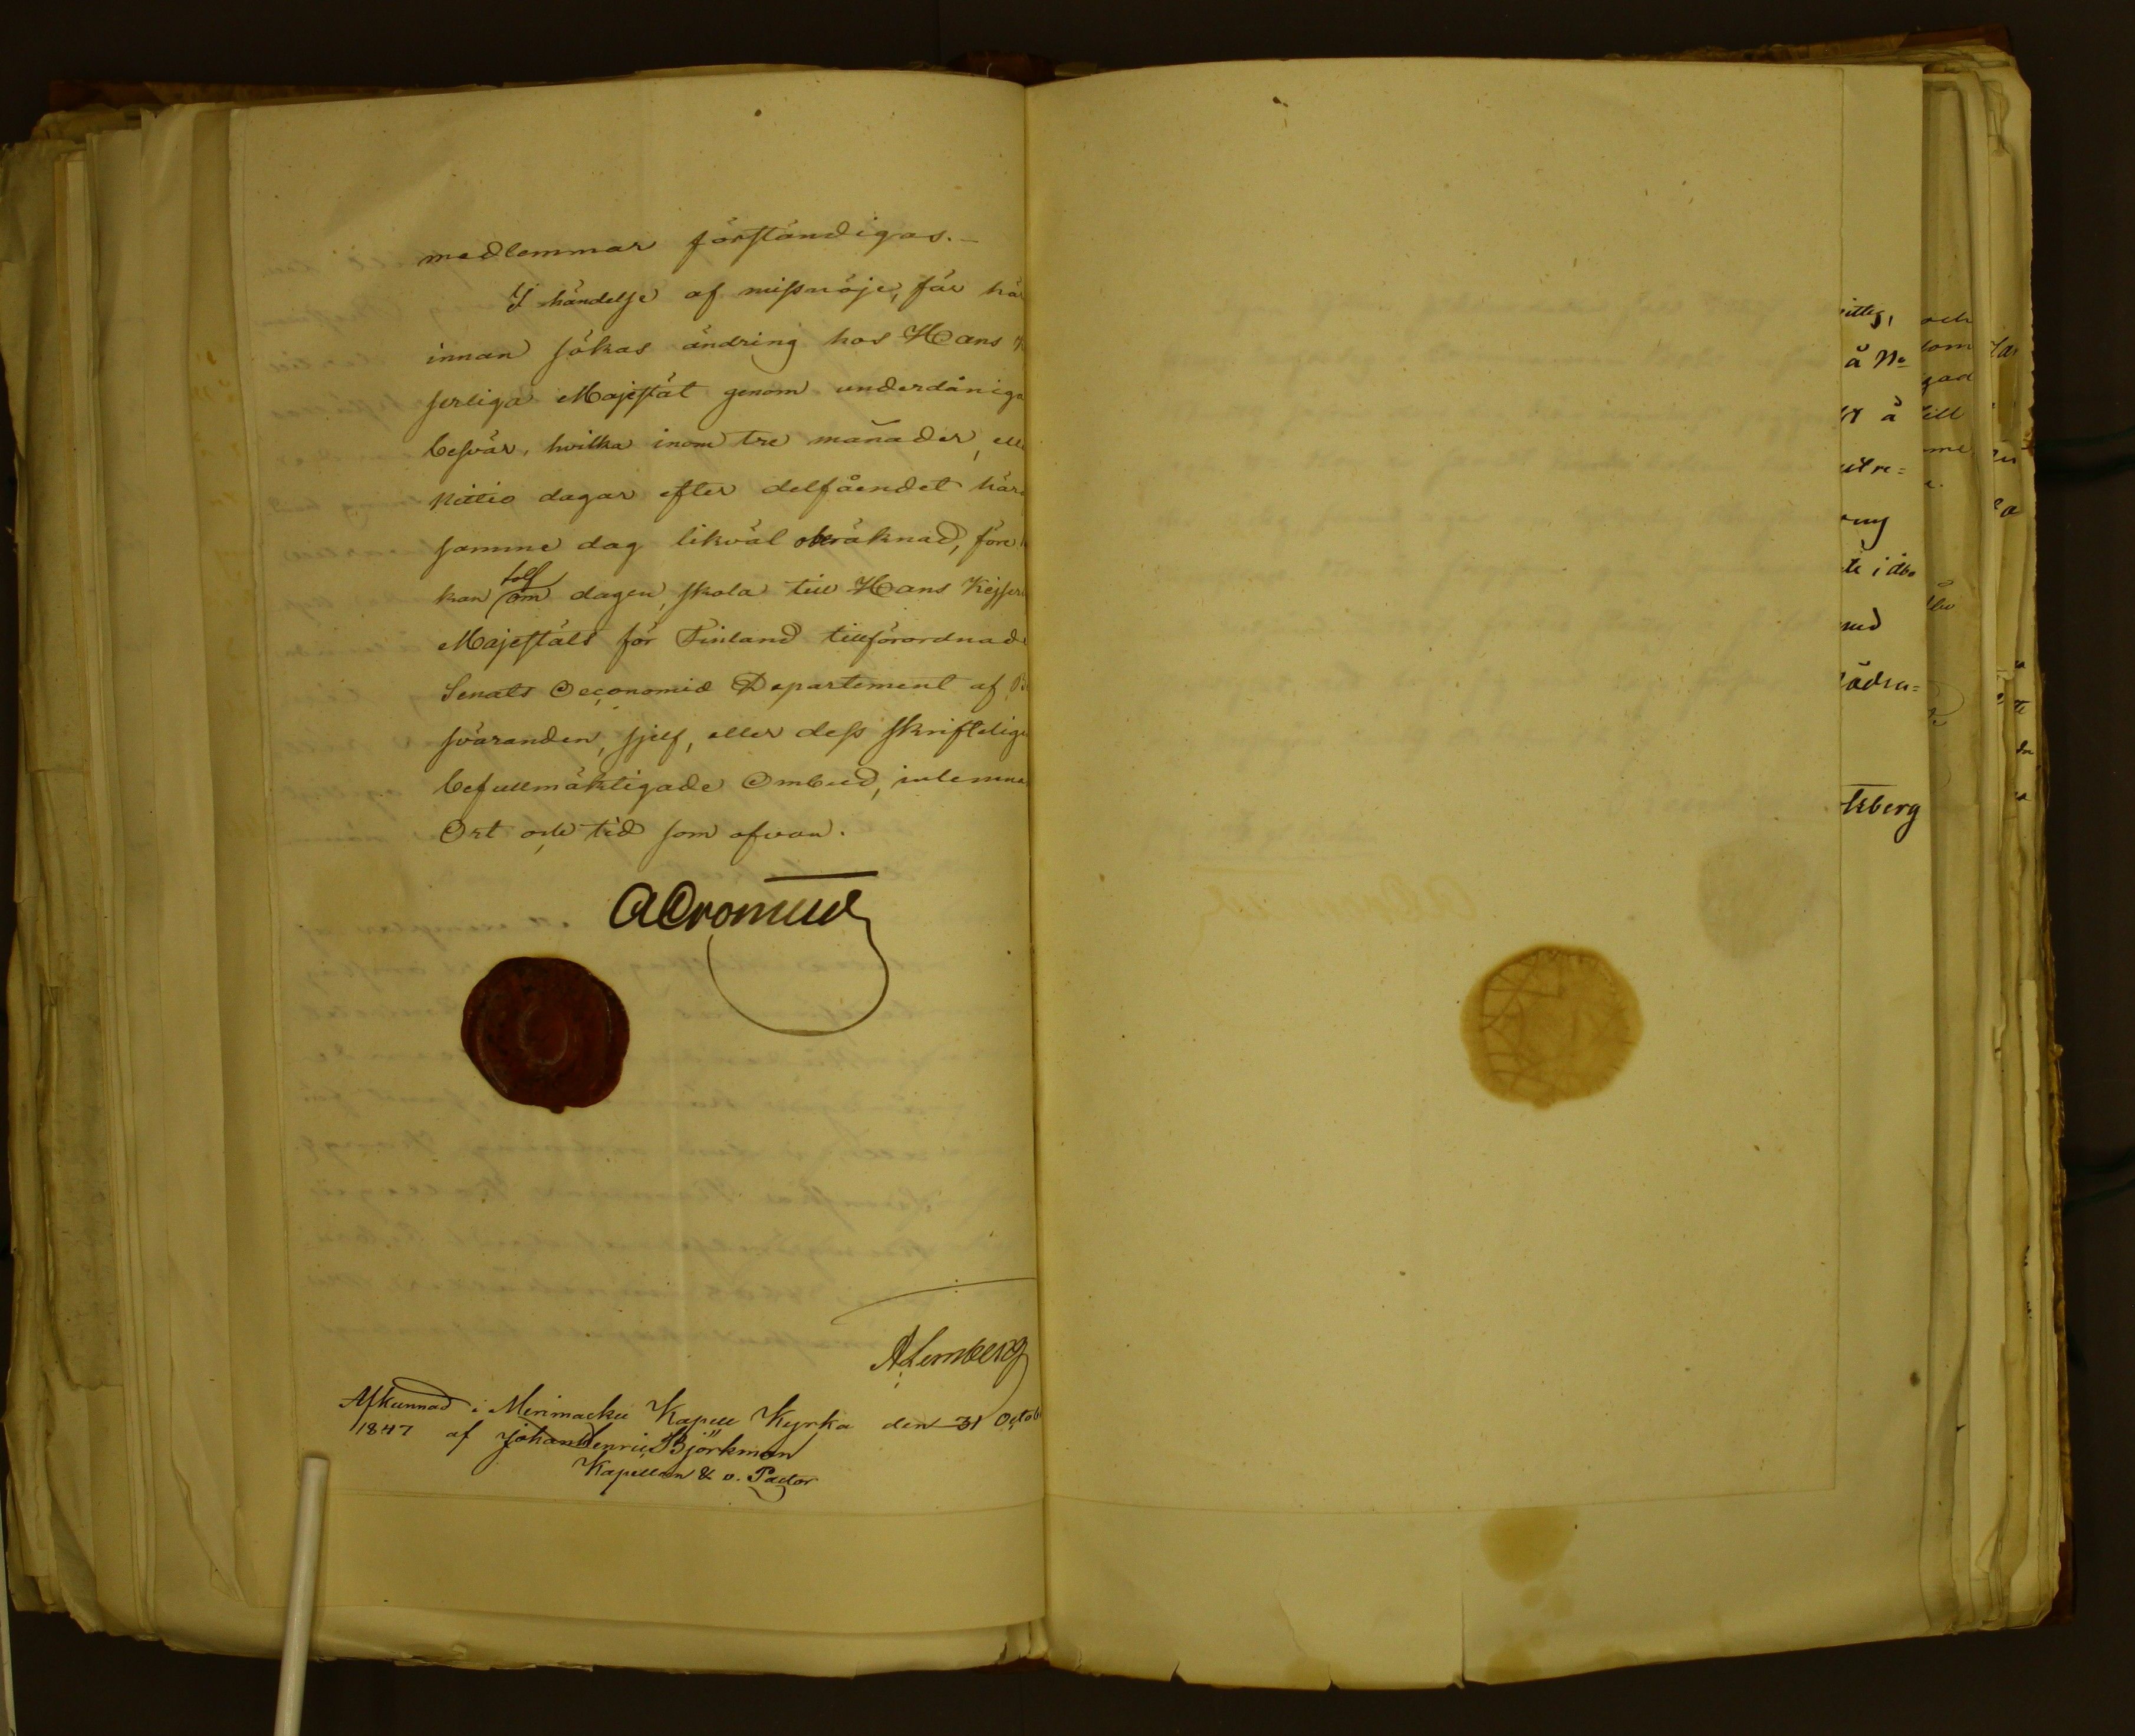 medlemmar förständigas.-
I händelse af missnöje, får hä
innan sökas ändring hos Hans K
serliga Majestät genom underdåniga
besvär, hvilka inom tre månader, ell
nittio dagar efter delfåendet här
samme dag likväl oberäknad, före
tolf
kan om dagen, skola till Hans Kejser
Majestäts för Finland tillförordnade
Senats Oeconomie Departement af Be
sväranden, sjelf, eller dess skriftelige
befullmäktigade Ombud, inlemna
Ort och tid som ofvan.
ACronmed
A Lemberg
Afkunnad i Merimacku Kapell Kyrka den 31 Octob
1847 af Johan Henric Björkman
Kapellan & v. Pastor
ittig,
å No
å
ut re=
ning
te i åbo
med
ädra=
berg
och
som
gad
till
me